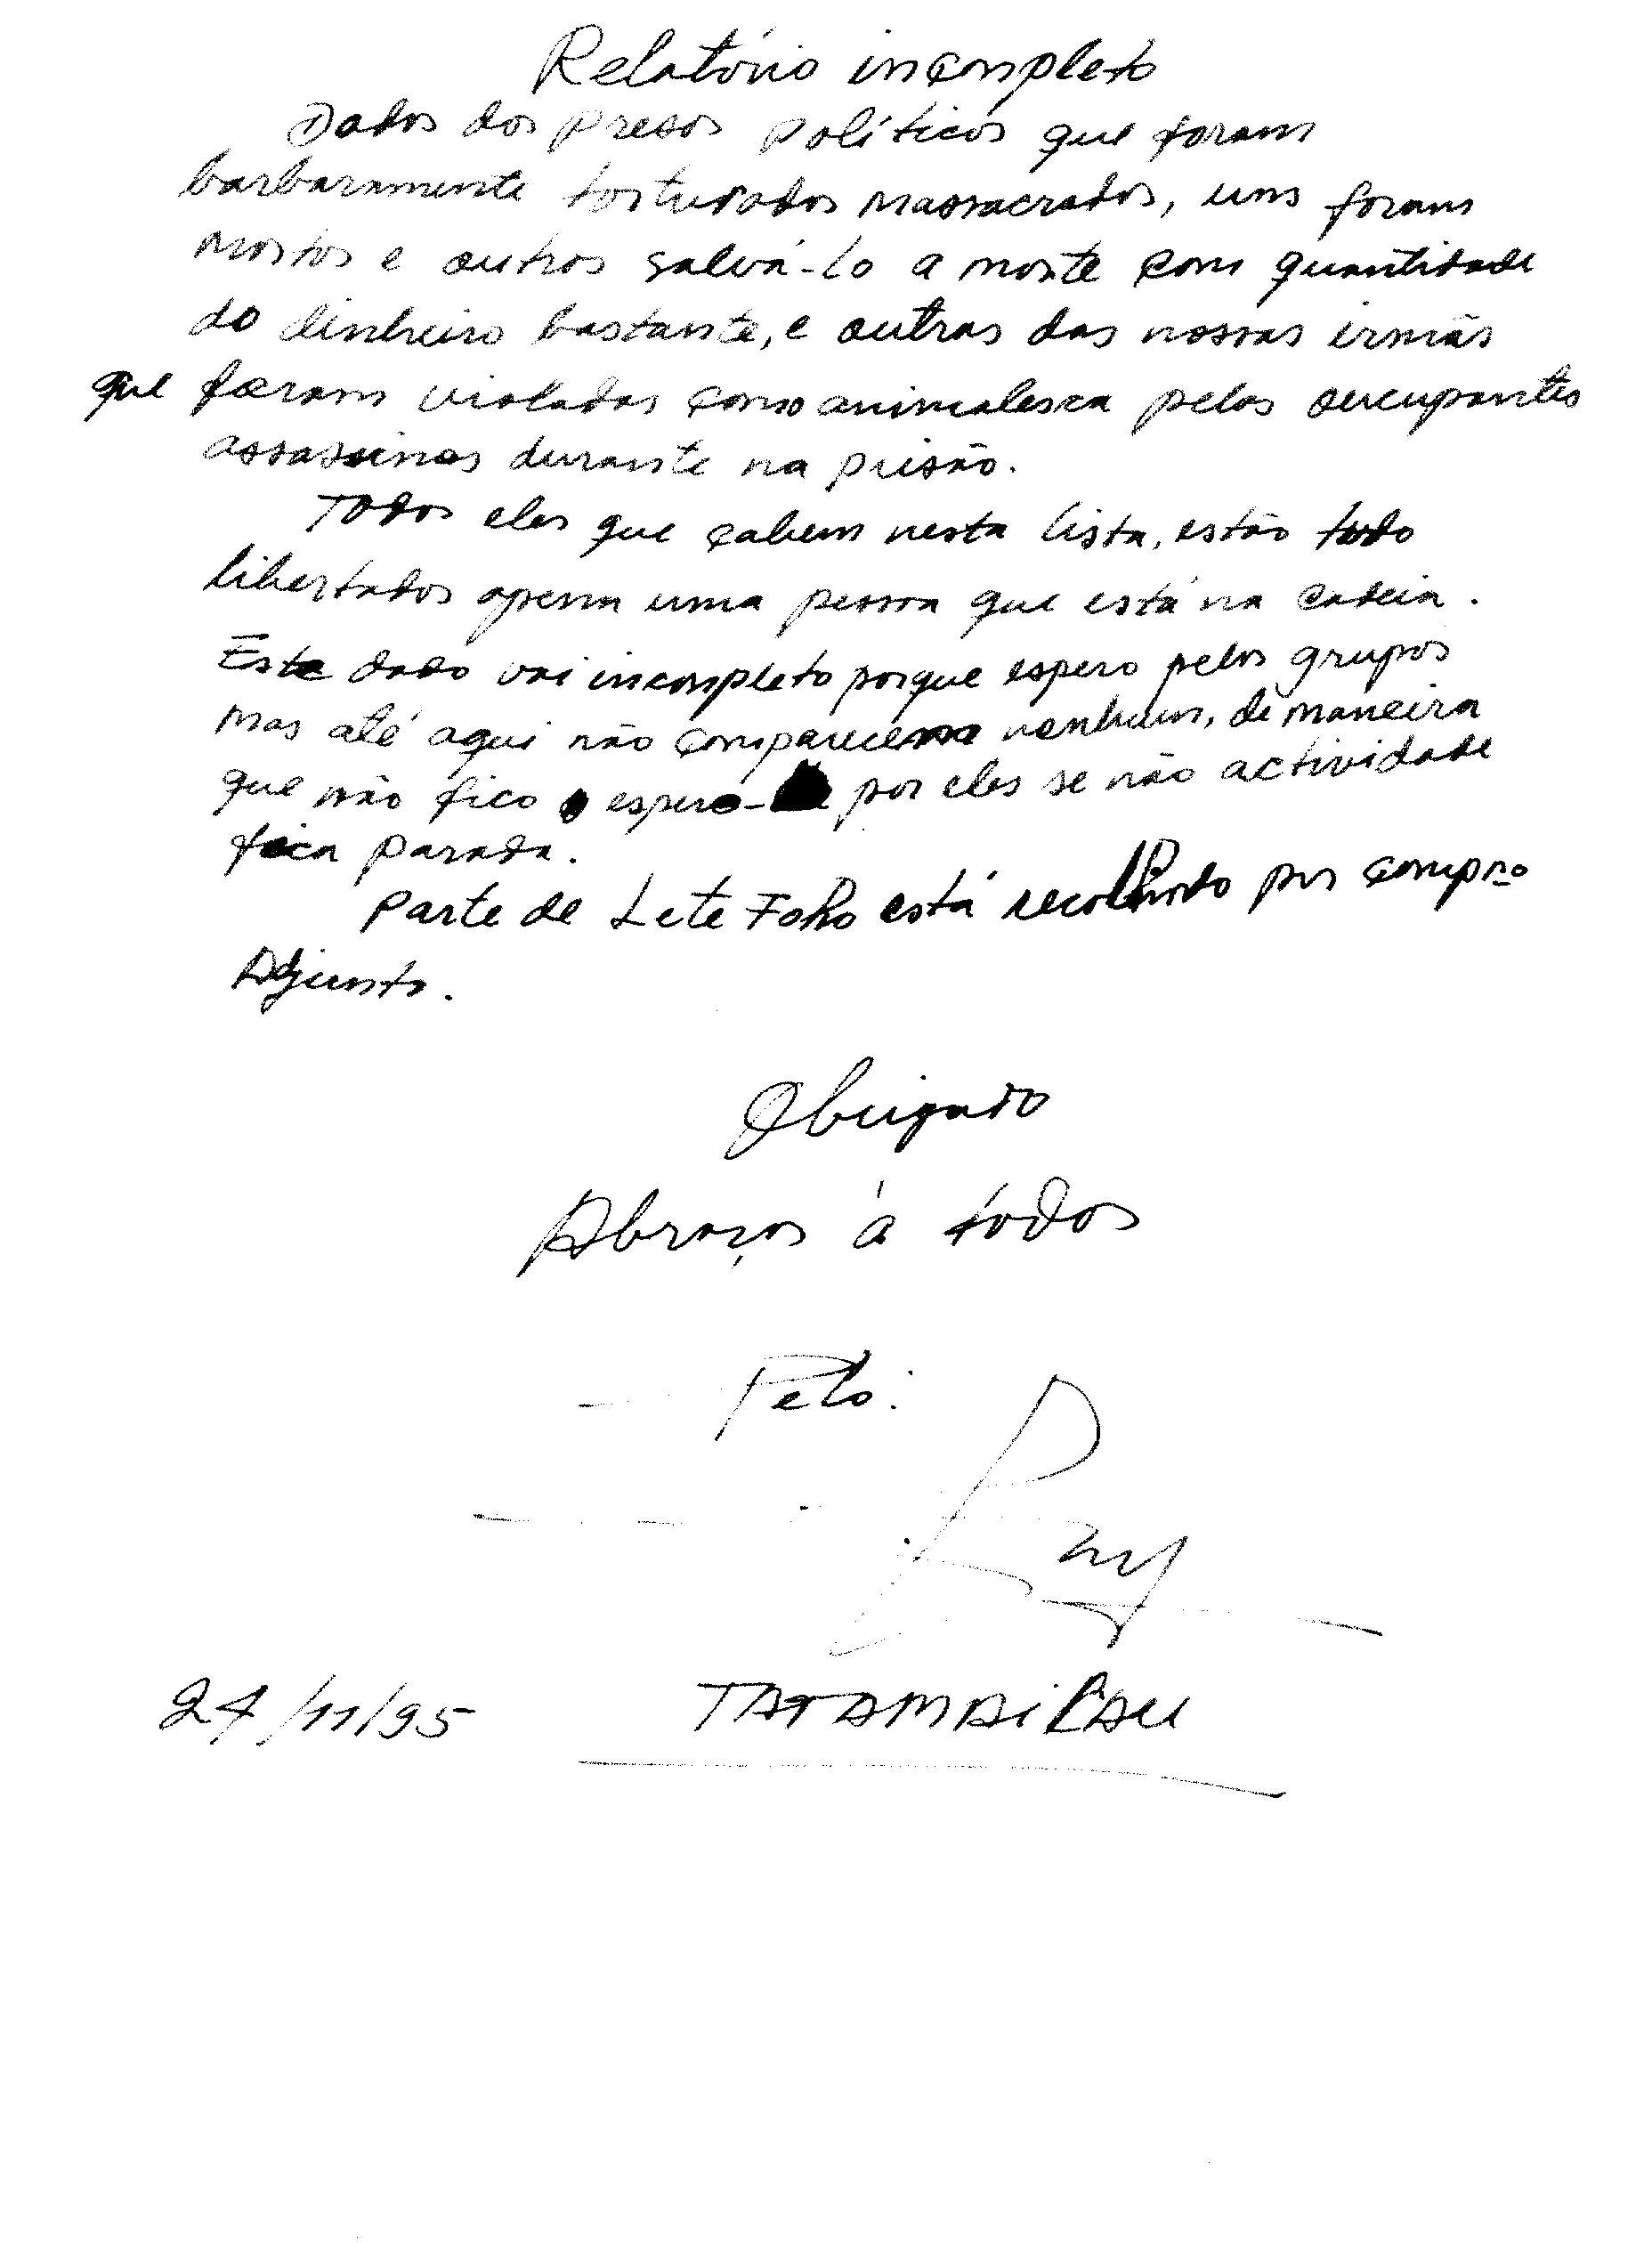 Relatório incompleto
Dados dos presos políticos que foram
barbaramente torturados massacrados, uns foram
mortos e outros salvá-lo a morte com quantidade
do dinheiro bastante, e outras das nossas irmãs
que foram violadas como animalesca pelos ocupantes
assassinos durante na prisão.
Todos eles que cabem nesta lista, estão tudo
libertados apena uma pessoa que está na cadeia.
Este dado vai incompleto porque espero pelos grupos
mas até aqui não comparecem nenhum, de maneira
que não fico espero- por eles se não actividade
fica parada.
Parte de Lete Foho está recolhido por compº
Adjunto.
Obrigado
Abraços à todos
Pelo:
24/11/95 TATAMAILAU